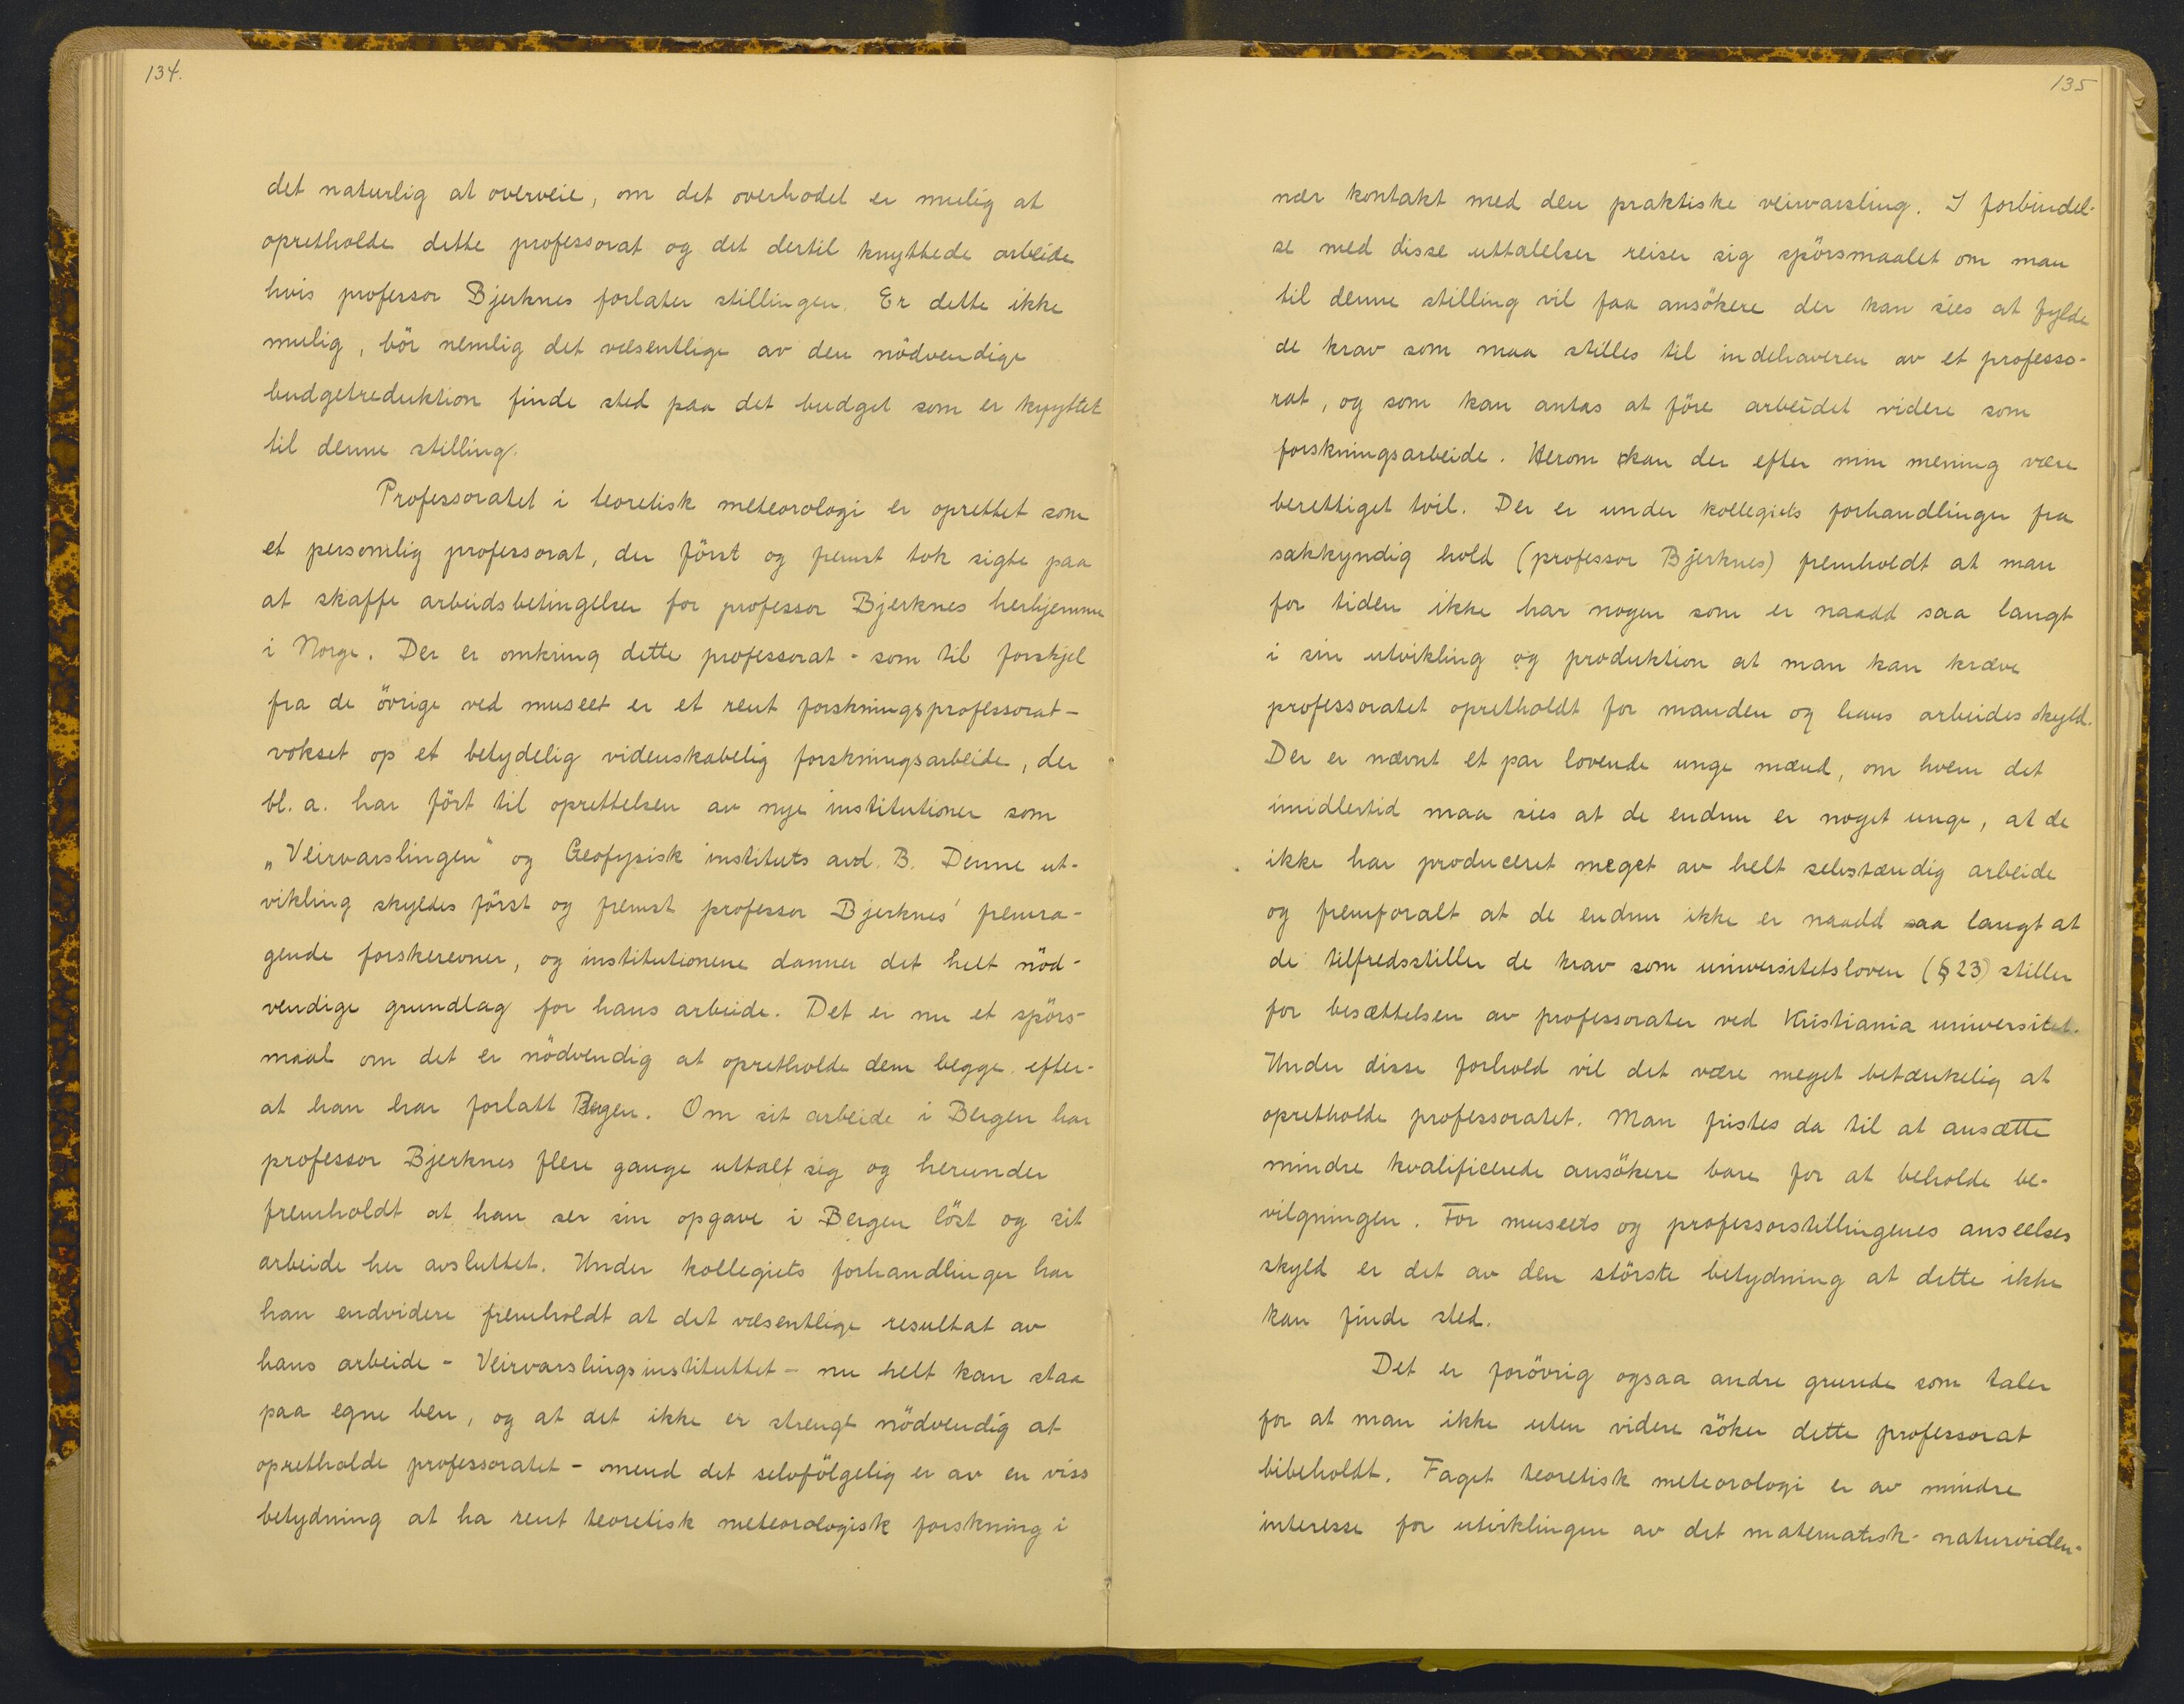 134.
det naturlig at overveie, om det overhodet er mulig at
opretholde dette professorat og det dertil knyttede arbeide
hvis professor Bjerknes forlater stillingen. Er dette ikke
mulig, bör nemlig det væsentlige av den nödvendige
budgetreduktion finde sted paa det budget som er knyttet
til denne stilling.
Professoratet i teoretisk meteorologi er oprettet som
et personlig professorat, der först og fremst tok sigte paa
at skaffe arbeidsbetingelser for professor Bjerknes herhjemme
i Norge. Der er omkring dette professorat - som til forskjel
fra de övrige ved museet er et rent forskningsprofessorat -
vokset op et betydelig videnskabelig forskningsarbeide, der
bl. a. har fört til oprettelsen av nye institutioner som
„Veirvarslingen" og Geofysisk instituts avd. B. Denne ut-
vikling skyldes först og fremst professor Bjerknes' fremra-
gende forskerevner, og institutionene danner det helt nöd-
vendige grundlag for hans arbeide. Det er nu et spörs-
maal om det er nödvendig at opretholde dem begge efter-
at han har forlatt Bergen. Om sit arbeide i Bergen har
professor Bjerknes flere gange uttalt sig og herunder
fremholdt at han ser sin opgave i Bergen löst og sit
arbeide her avsluttet. Under kollegiets forhandlinger har
han endvidere fremholdt at det væsentlige resultat av
hans arbeide - Veirvarslingsinstituttet - nu helt kan staa
paa egne ben, og at det ikke er strengt nödvendig at
opretholde professoratet - mend det selvfölgelig er av en viss
betydning at ha rent teoretisk meteorologisk forskning i
135
nær kontakt med den praktiske veirvarsling. I forbindel-
se med disse uttalelser reiser sig spörsmaalet om man
til denne stilling vil faa ansökere der kan sies at fylde
de krav som maa stilles til indehaveren av et professo-
rat, og som kan antas at före arbeidet videre som
forskningsarbeide. Herom kan der efter min mening være
berettiget tvil. Der er under kollegiets forhandlinger fra
sakkyndig hold (professor Bjerknes) fremholdt at man
for tiden ikke har nogen som er naadd saa langt
i sin utvikling og produktion at man kan kræve
professoratet opretholdt for manden og hans arbeides skyld.
Der er nævnt et par lovende unge mænd, om hvem det
imidlertid maa sies at de endnu er noget unge, at de
ikke har produceret meget av helt selvstændig arbeide
og fremforalt at de endnu ikke er naadd saa langt at
de tilfredsstiller de krav som universitetsloven (§ 23) stiller
for besættelsen av professorater ved Kristiania universitet.
Under disse forhold vil det være meget betænkelig at
opretholde professoratet. Man fristes da til at ansætte
mindre kvalificerede ansökere bare for at beholde be-
vilgningen. For museets og professorstillingenes anseelses
skyld er det av den störste betydning at dette ikke
kan finde sted.
Det er forövrig ogsaa andre grunde som taler
for at man ikke uten videre söker dette professorat
bibeholdt. Faget teoretisk meteorologi er av mindre
interesse for utviklingen av det matematisk-naturviden-